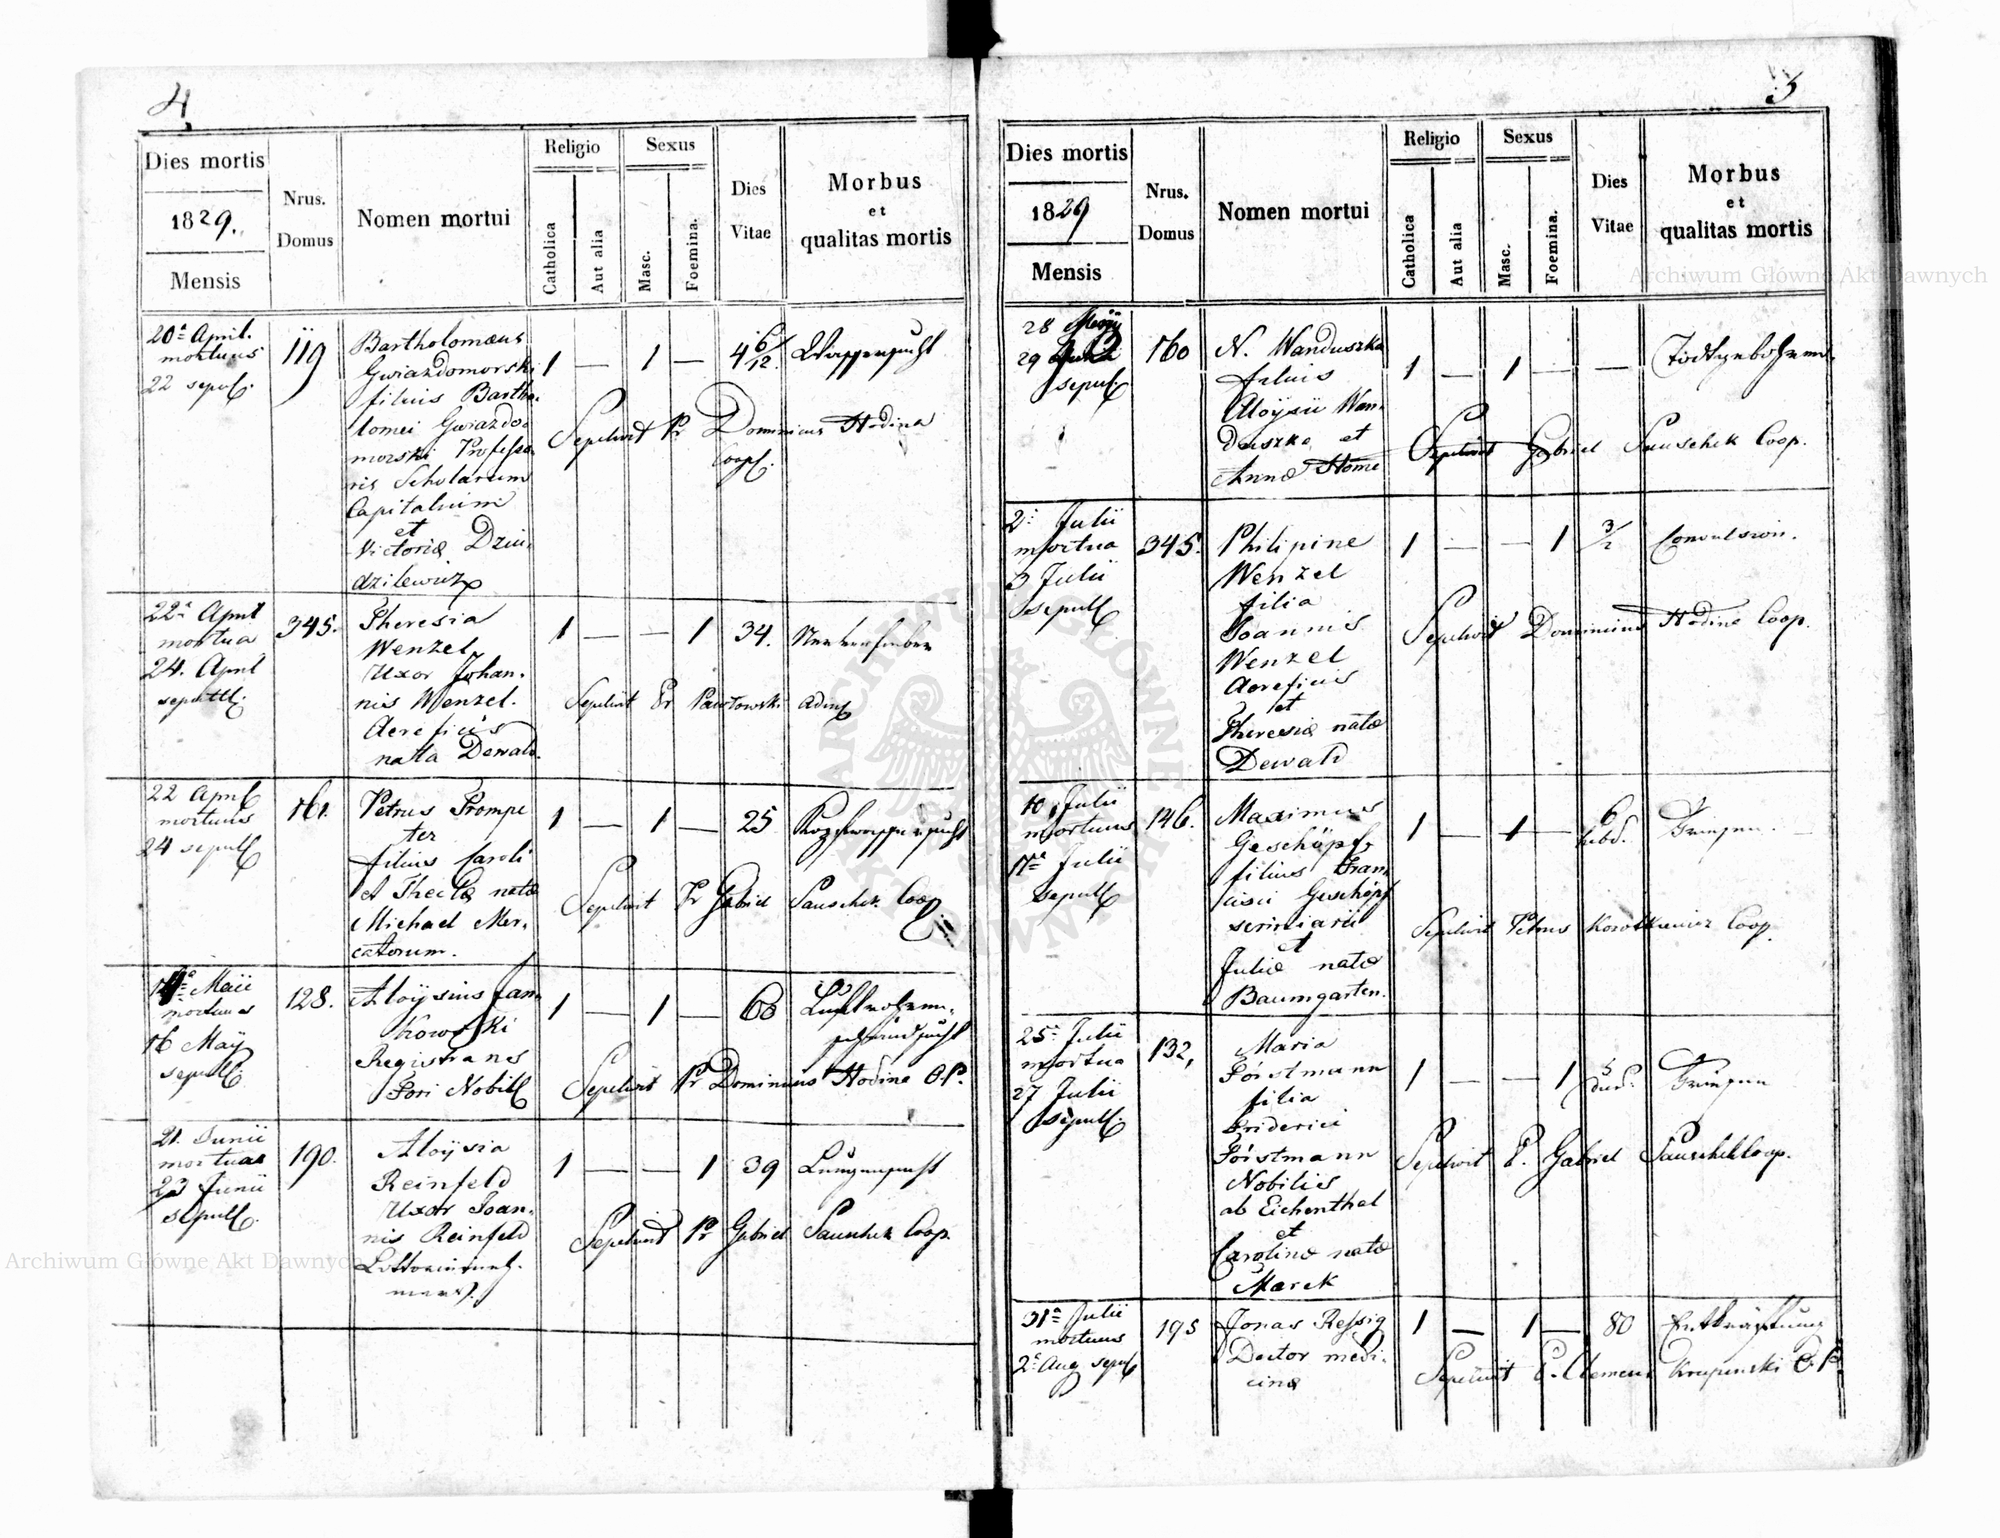 4
Dies mortis
1829.
Mensis
Nrus.
Domus
Nomen mortui
Religio
Catholica
Aut alia
Sexus
Masc.
Foemina.
Dies
Vitae
Morbus
et
qualitas mortis
20ª April.
mortuus
22 sepul.
119
Bartholomæus
Gwiazdomorski
filius Bartho.
lomei Gwiazdo.
morski Professo.
ris Scholarum
Capitalium
et
Victoriæ Dziu.
dzilewicz
1 — 1 — 4 6/12
Sepelivit Pr Dominicus Hodina
Coop.
22ª April
mortua
24. April
sepult.
345.
Theresia
Wenzel
Uxor Johan.
nis Wenzel.
Aereficis
nata Dewald.
1 — — 1 34. Nervenfieber
Sepelivit Pr Pawlowski
22 April
mortuus
24 sepult
161.
Petrus Trompe
ter
filius Caroli
et Theclæ natæ
Michael Mer.
catorum.
1 — 1 — 25
Sepelivit Pr Gabriel Sauschek Coop.
14ª Maii
mortuus
16 Maÿ
sepult.
128.
Aloysius Jan.
kowski
Registrans
Fori Nobil
1 — 1 — 60 Luftröhren.
schwindsucht
Sepelivit Pr Dominicus Hodina O.P.
21. Junii
mortua
23 Junii
sepult.
190.
Aloÿsia
Reinfeld
Uxor Joan.
nis Reinfeld
1 — — 1 39 Lungensucht
Sepelivit Pr Gabriel Sauschek Coop.
5
Dies mortis
1829
Mensis
Nrus.
Domus
Nomen mortui
Religio
Catholica
Aut alia
Sexus
Masc.
Foemina.
Dies
Vitae
Morbus
et
qualitas mortis
28
29
sepul.
160
N. Wanduszka
filius
Aloÿsii Wan.
duszka et
Annæ Home
1 — 1 — — Todtgebohren.
Sepelivit Gabriel Sauschek Coop.
2ª Julii
mortua
3 Julii
sepult
345.
Philipine
Wenzel
filia
Joannis
Wenzel
Aereficis
et
Theresiæ natæ
Dewald
1 — — 1 3/2 Convulsion.
Sepelivit Dominicus Hodina Coop.
10 Julii
mortuus
17ª Julii
sepult
146.
Maximus
Geschöpf
filius Fran
cisci Geschöpf
scriniarii
et
Juliæ natæ
Baumgarten.
1 — 1 — 6
hebd.
Fraisen.
Sepelivit Petrus Korotkiewicz Coop.
25ª Julii
mortua
27 Julii
sepult.
132,
Maria
Förstmann
filia
Friderici
Förstmann
Nobilis
ab Eichenthal
et
Carolinæ natæ
Marek
1 — — 1
Fraisen
Sepelivit P. Gabriel Sauschek Coop.
31ª Julii
mortuus
2ª Aug sepul
195
Jonas Ressig
Doctor medi.
cinæ
1 — 1 — 80 Entkräftung
Sepelivit P. Clemens Krupinski O.P.
Archiwum Główne Akt Dawnych
Archiwum Główne Akt Dawnych
ARCHIWUM GŁÓWNE AKT DAWNYCH